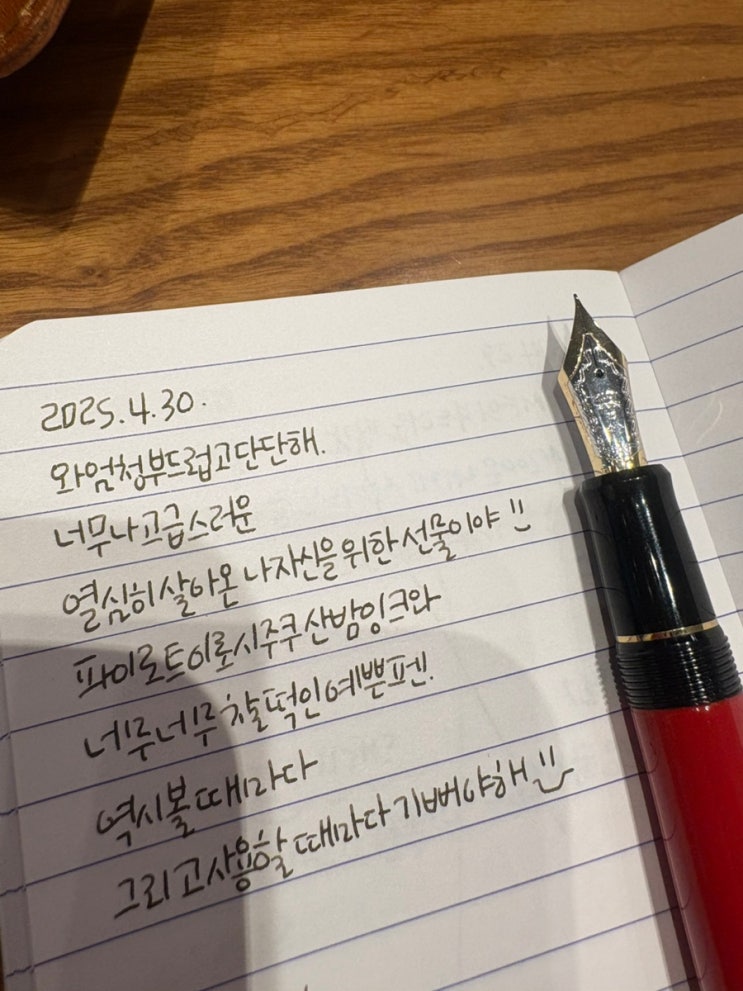 2025.4.30.
와 엄청 부드럽고 단단해.
너무나 고급스러운
열심히 살아온 나 자신을 위한 선물이야 :)
파이로트 이로시주쿠 산밤 잉크와
네루네루 찰떡인 예쁜 펜.
역시 볼 때마다
그리고 사용할 때마다 기뻐야 해 :)